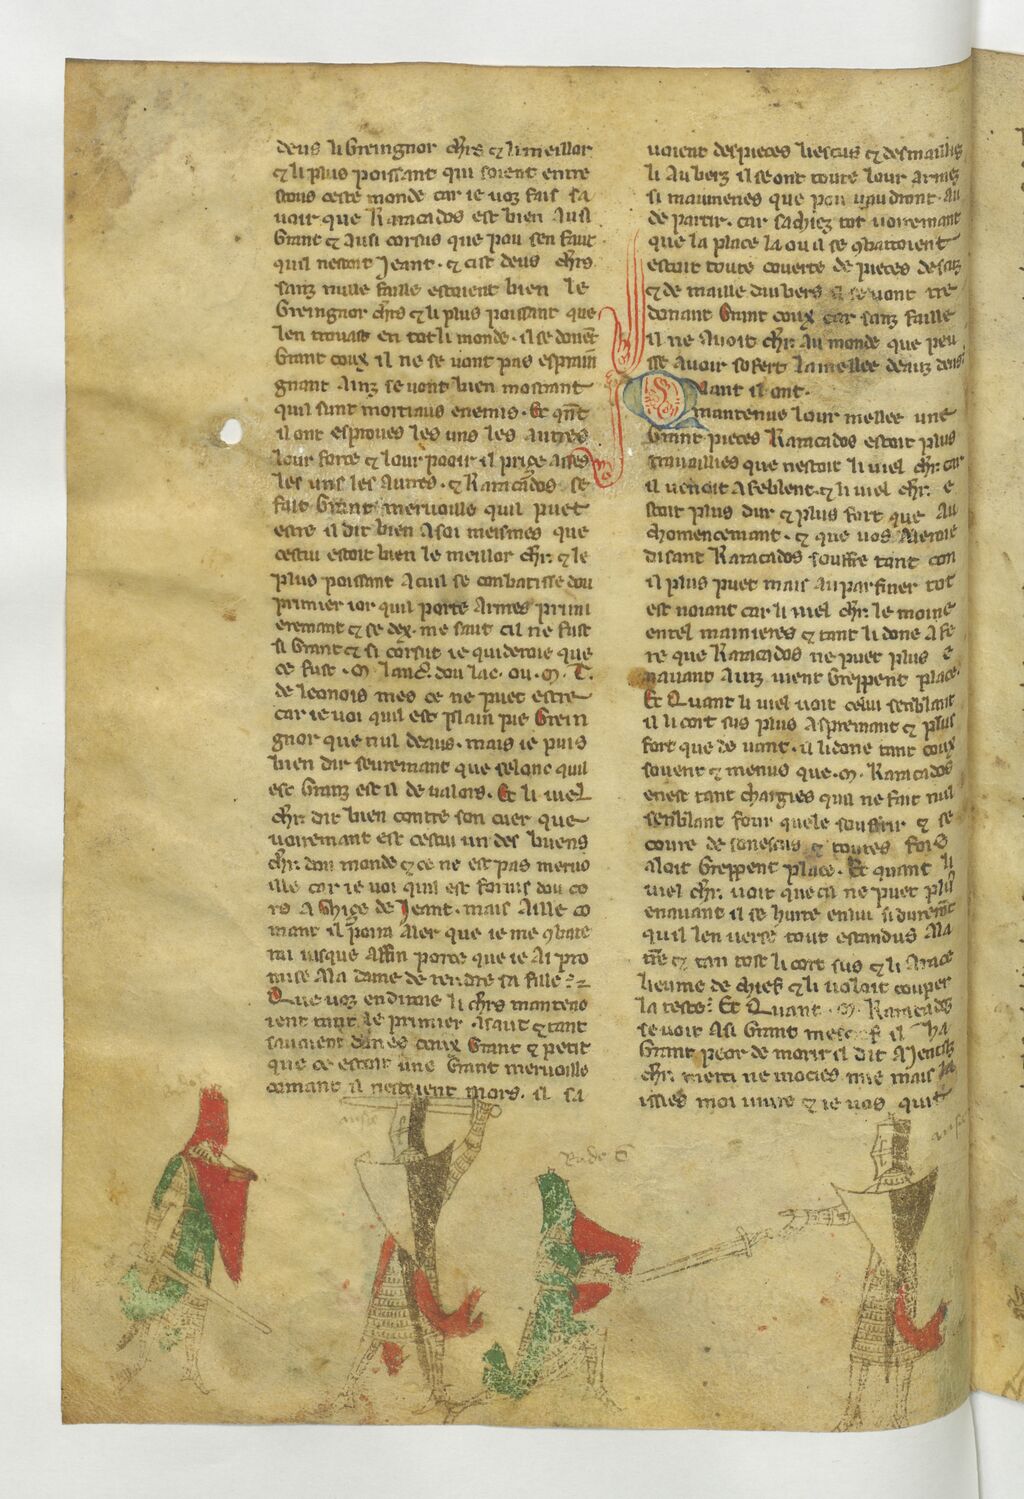 deus li Greingnor chrs ⁊ li meillor
⁊ li plus poissant qui soient entre
stous ceste monde car ie uoz fais sa
uoir que Karacados est bien Ausi
Grant ⁊ Ausi corsus que pou sen faut
quil nestoit Jeant. ⁊ cist deus chrs
sanz nulle faille estoient bien le
Greingnor chrs ⁊ li plus poissant que
len trouast en tot li monde. il se donent
Grant coux il ne se uont pas espram
gnant Ainz se uont bien mostrant
quil sunt mortiaus enemis. Et qnt
il ont esproues les uns les autres
lour force ⁊ lour pooir il prise asses
les uns les autres. ⁊ Karacados se
fait Grant meruoille quil puet
estre il dit bien A soi meismes que
cestui estoit bien le meillor chr. ⁊ le
plus poissant A cui se conbatisse dou
primier ior quil porte Armes primi
eremant ⁊ se dex. me saut cil ne fust
si Grant ⁊ si corsut ie quideroie que
ce fust .m. lanc. dou lac. ou .m. T.
de leonois mes ce ne puet estre
car ie uoi quil est plain pie Grein
gnor que nul deaus. mais ie puis
bien dir seuremant que selonc quil
est Granz est il de ualors. Et li uiel
chr. dit bien contre son cuer que
uoiremant est cestou un des buens
chr. dou monde ⁊ ce ne est pas meruo
ille car ie uoi quil est formis dou co
rs A Guige de Jeant. mais Aille co
mant il porra Aler que ie me conbate
rai iusque Affin porce que ie Ai pro
mise A la dame de rendre sa fille
Que uoz endiroie li chrs manteno
ient tant le primier Asaut ⁊ tant
sauoient dones coux Grant ⁊ petit
que ce estoit une Grant meruoille
comant il nestoient mors. il sa
uoient despieces li escus ⁊ desmailles
li Auberz il se ont toute lour armez
si maumenes que pou uaudront Au
de partir. car sachiez tot uoiremant
que la place la ou il se conbattoient
estoit toute couerte de pieces descuz
⁊ de maille dauberz il se uont tre
donant Grant coux car sanz faille
il ne Auoit chr. Au monde que peu
sse Auoir sofert la mellee deauz deus.
Quant il ont.
mantenue lour mellee une
Grant pieces Karacados estoit plus
trauaillies que nestoit li uiel chr. car
il uenoit Afeblent. ⁊ li uiel chr. e
stoit plus dur ⁊ plus fort que Au
chomencemant. ⁊ que uos Aleroie
disant Karacados souffre tant con
il plus puet mais Au parfiner tot
est noiant car li uiel chr. le moine
entel mainieres ⁊ tant li done Afe
re que Karacados ne puet plus e
nauant Ainz uient Greppent place.
Et Quant li uiel uoit celui senblant
il li cort sus plus Aspremant ⁊ plus
fort que de uant. il li done tant coux
souent ⁊ menus que .m. Karacados
en est tant chargies quil ne fait nul
senblant four que le souffrir ⁊ se
coure de son escus ⁊ toutes fois
aloit Greppent place. Et quant li
uiel chr. uoit que cil ne puet plus
enauant il se hurte en lui si durement
quil len uerse tout estandus A la
tre ⁊ tan tost li cort sus ⁊ li Arace
lieume de chief ⁊ li uoloit couper
la teste. Et Quant .m. Karacados
se uoit Asi Grant il ha
Grant peor de morir il dit A Jentilz
chr. merci ne mocies mie mais la
issies moi uiure ⁊ ie uos quit